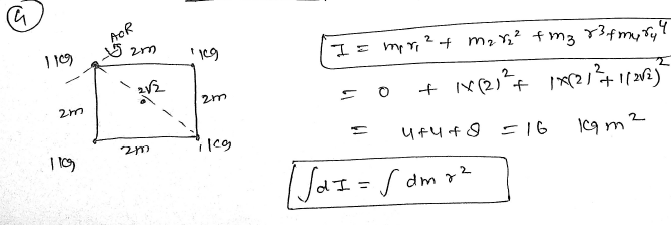 4
AOR
1 kg 2m 1 kg
2√2
2m 2m
2m
1 kg 1 kg
I = m₁r₁² + m₂r₂² + m₃ r³ + m₄r₄⁴
= 0 + 1×(2)² + 1×(2)² + 1(2√2)²
= 4+4+8 = 16 kg m²
∫dI = ∫ dm r²